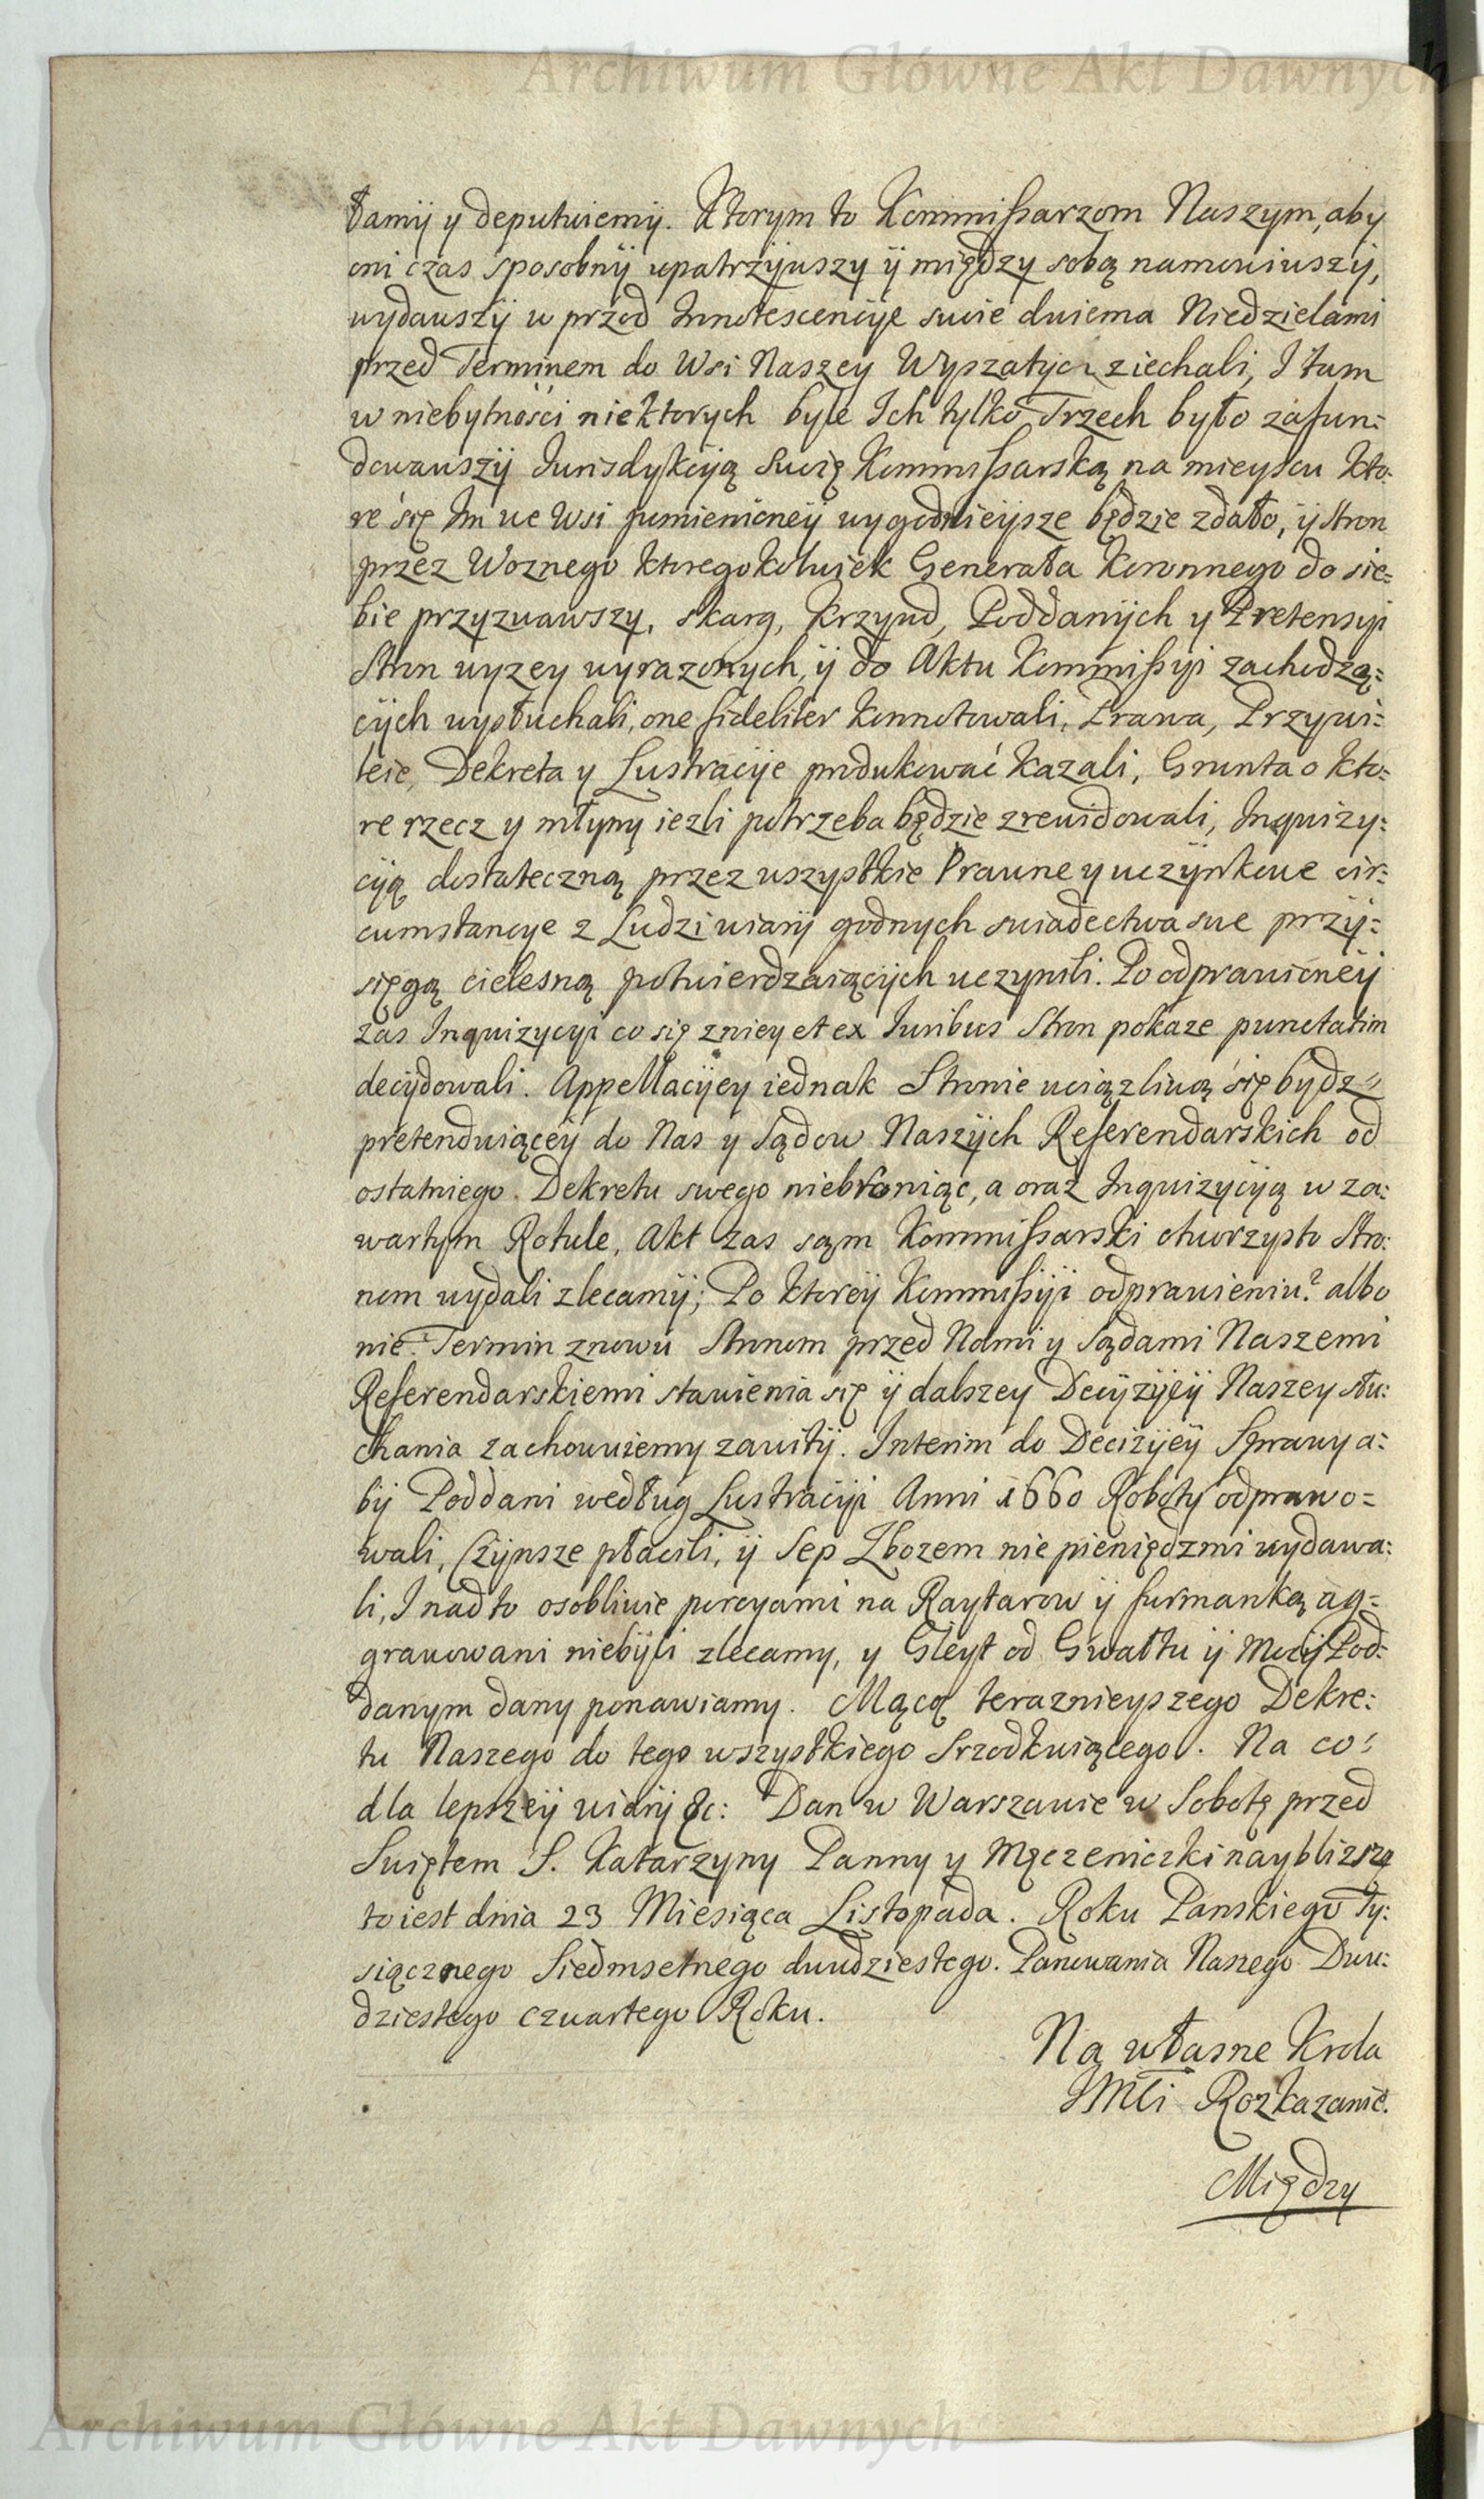 Archiwum Główne Akt Dawnych
łamy y deputuiemy. Ktorym to Kommissarzom Naszym, aby
oni czas sposobny upatrzywszy y między sobą namowiwszy,
wydawszy w przod Innotescencye swie dwiema Niedzielami
przed Terminem do Wsi Naszey Wyszatyc ziechali, I tam
w niebytności niektorych byle Ich tylko Trzech było zafun=
dowawszy Iurisdykcyą Swię Kommissarską na mieyscu kto=
re się Im we Wsi pomienioney wygodnieysze będzie zdało, y Stron
przez Woznego ktoregokolwiek Generała Koronnego do sie=
bie przyzwawszy, skarg, krzywd, Poddanych y Pretensyi
Stron wyzey wyrazonych, y do Aktu Kommissyi zachodzą=
cych wysłuchali, one fideliter konnotowali, Prawa, Przywi=
leie, Dekreta y Lustracye produkować kazali, Grunta o kto=
re rzecz y młyny iezli potrzeba będzie zrewidowali, Inquizy=
cyą dostateczną przez wszystkie Prawne y uczynkowe cir=
cumstancye z Ludzi wiary godnych swiadectwa swe przy=
sięgą cielesną potwierdzaiących uczynili. Po odprawioney
zas Inquizycyi co się z niey et ex Iuribus Stron pokaze punctatim
decydowali. Appellacyey iednak Stronie uciązliwą się bydz
pretenduiącey do Nas y Sądow Naszych Referendarskich od
ostatniego Dekretu swego niebroniąc, a oraz Inquizycyą w za=
wartym Rotule, Akt zas sąm Kommissarski otworzysto Stro=
nom wydali zlecamy; Po ktorey Kommissyi odprawieniu? albo
nie. Termin znowu Stronom przed Nami y Sądami Naszemi
Referendarskiemi stawienia się y dalszey Decyzyey Naszey słu=
chania zachowuiemy zawity. Interim do Decizyey Sprawy a=
by Poddani według Lustracyi Anni 1660 Roboty odprawo=
wali, Czynsze płacili, y Sep Zbozem nie pieniędzmi wydawa=
li, I nad to osobliwie porcyami na Raytarow y furmanką ag=
grawowani niebyli zlecamy, y Gleyt od Gwałtu y Mocy Pod=
danym dany ponawiamy. Mącą teraznieyszego Dekre=
tu Naszego do tego wszystkiego Srzodkuiącego. Na co
dla lepszey wiary &c: Dan w Warszawie w Sobotę przed
Swiętem S. Katarzyny Panny y Męczeniczki naybliszą
to iest dnia 23 Miesiąca Listopada. Roku Panskiego Ty=
siącznego Siedmsetnego dwudziestego. Panowania Naszego Dwu=
dziestego czwartego Roku.
Na własne Krola
JMCi Rozkazanie.
Między
Archiwum Główne Akt Dawnych